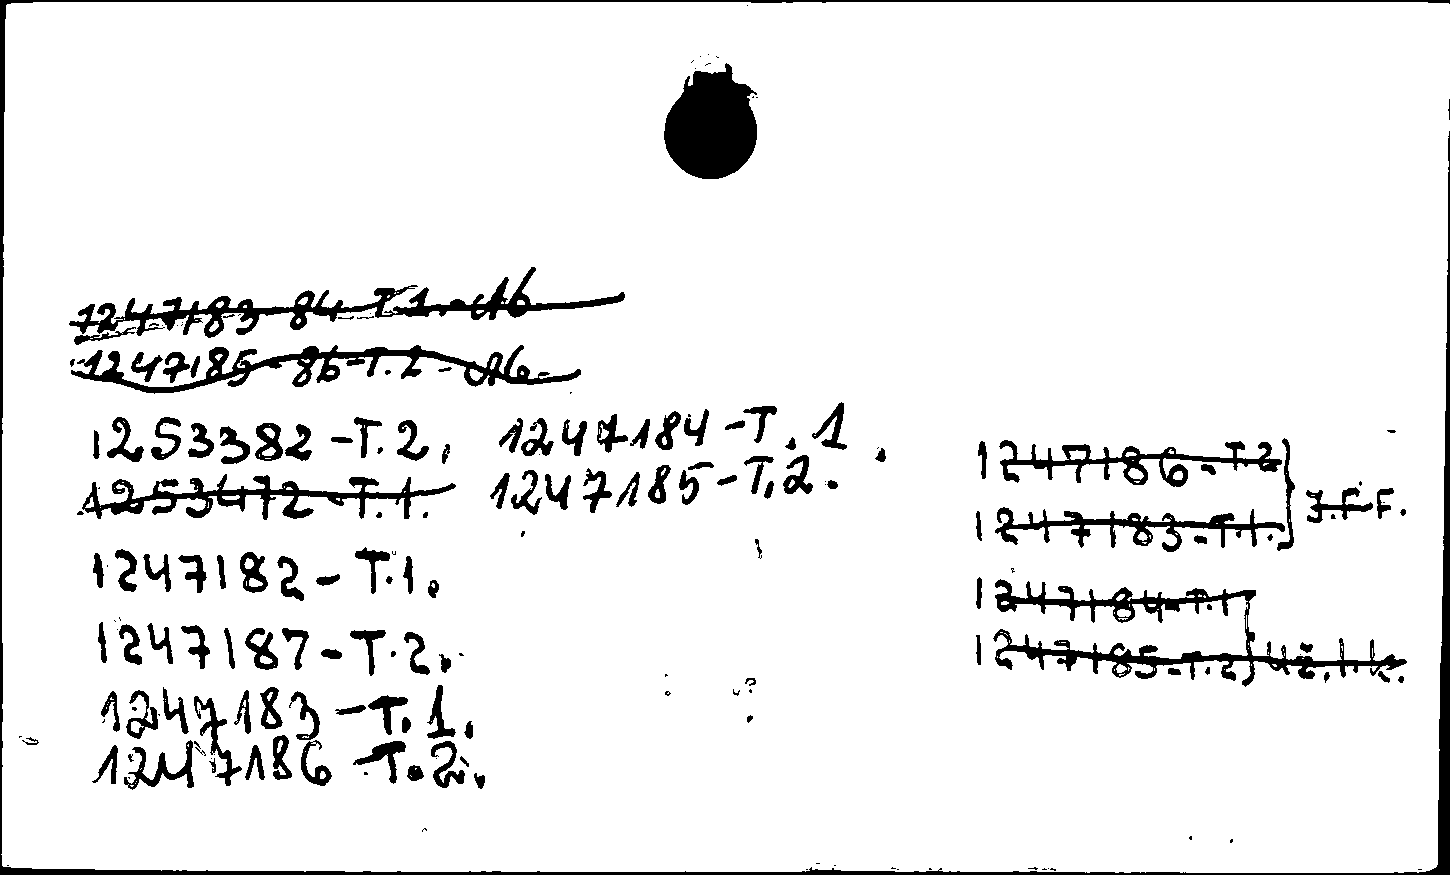 1247183-84 T.1.-A6
1247185-86-T.2-A6-
1253382-T.2. 1247184-T.1.
1253472-T.1. 1247185-T.2.
1247182-T.1.
1247187-T.2.
1247183-T.1.
1247186-T.2.
1247186-T.2
1247183-T.1. J.F.F.
1247184-T.1
1247185-T.2